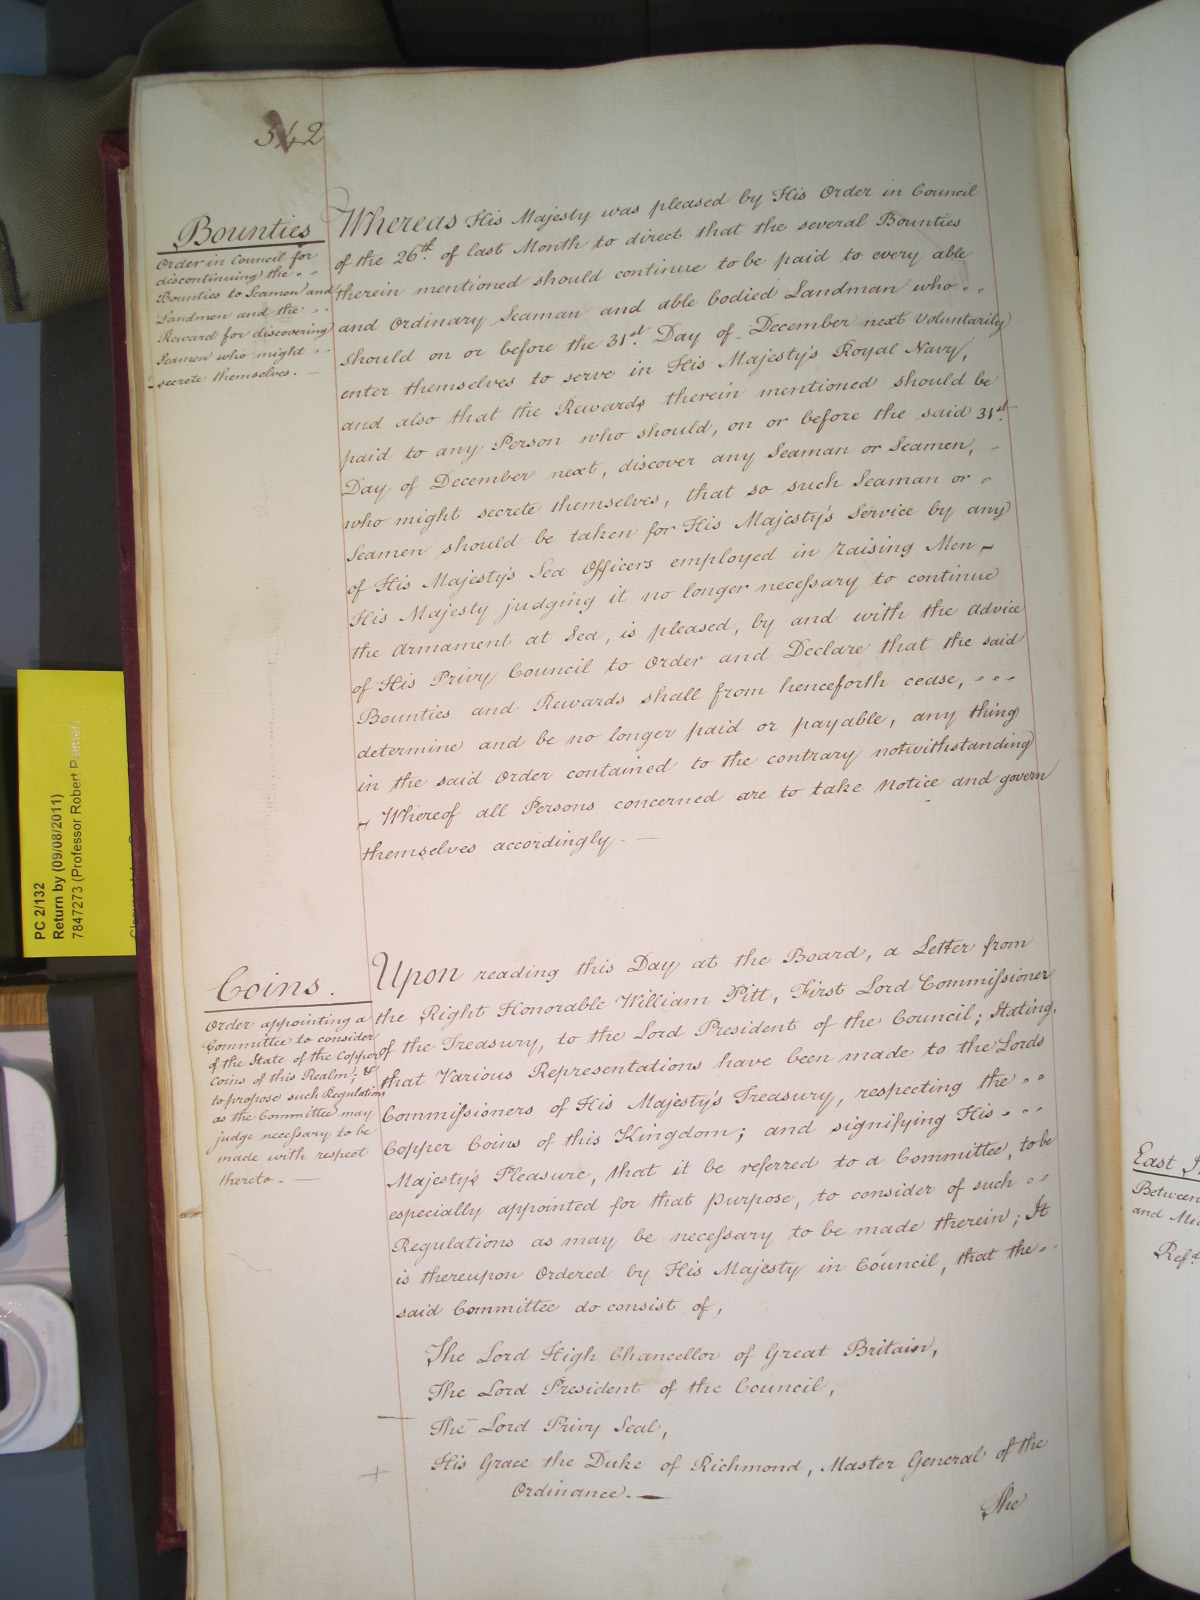 542
Bounties
Order in Council for
discontinuing the
Bounties to Seamen and
Landmen and the
Reward for discovering
Seamen who might
secrete themselves. —
Whereas His Majesty was pleased by His Order in Council
of the 26th. of last Month to direct that the several Bounties
therein mentioned should continue to be paid to every able
and Ordinary Seaman and able bodied Landman who
should on or before the 31st. Day of December next voluntarily
enter themselves to serve in His Majesty's Royal Navy,
and also that the Rewards therein mentioned should be
paid to any Person who should, on or before the said 31st.
Day of December next, discover any Seaman or Seamen,
who might secrete themselves, that so such Seaman or
Seamen should be taken for His Majesty's Service by any
of His Majesty's Sea Officers employed in raising Men —
His Majesty judging it no longer necessary to continue
the Armament at Sea, is pleased, by and with the advice
of His Privy Council to Order and Declare that the said
Bounties and Rewards shall from henceforth cease,
determine and be no longer paid or payable, any thing
in the said Order contained to the contrary notwithstanding
— Whereof all Persons concerned are to take Notice and govern
themselves accordingly. —
Coins.
Order appointing a
Committee to consider
of the State of the Copper
Coins of this Realm; &
to propose such Regulations
as the Committee may
judge necessary to be
made with respect
thereto. —
Upon reading this Day at the Board, a Letter from
the Right Honorable William Pitt, First Lord Commissioner
of the Treasury, to the Lord President of the Council; Stating,
that Various Representations have been made to the Lords
Commissioners of His Majesty's Treasury, respecting the
Copper Coins of this Kingdom; and signifying His
Majesty's Pleasure, that it be referred to a Committee, to be
especially appointed for that purpose, to consider of such
Regulations as may be necessary to be made therein; It
is thereupon Ordered by His Majesty in Council, that the
said Committee do consist of,
The Lord High Chancellor of Great Britain,
The Lord President of the Council,
The Lord Privy Seal,
His Grace the Duke of Richmond, Master General of the
Ordinance. —
The
PC 2/132
Return by (09/08/2011)
7847273 (Professor Robert
East
Between
and
Refd